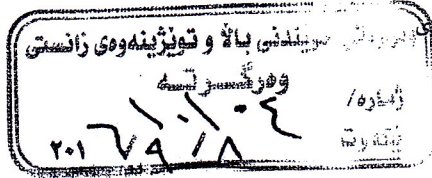 خوێندنی باڵا و توێژینەوەی زانستی
وەرگـــرتـــە
ژمارە/ ١٠١٠٤
٢٠١٦/٩/٨